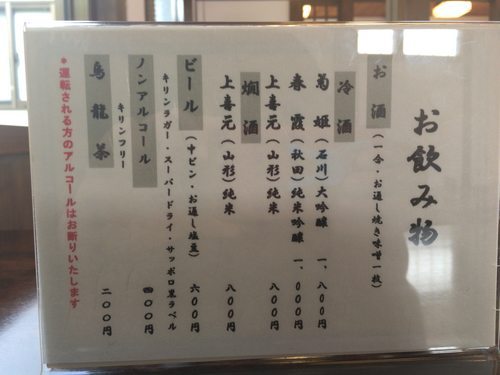 お飲み物
お酒（一合・お通し焼き味噌一枚）
冷酒
菊姫（石川）大吟醸 一、八〇〇円
春霞（秋田）純米吟醸 一、〇〇〇円
上喜元（山形）純米 八〇〇円
燗酒
上喜元（山形）純米 八〇〇円
ビール（中ビン・お通し塩豆） 六〇〇円
キリンラガー・スーパードライ・サッポロ黒ラベル
ノンアルコール 四〇〇円
キリンフリー
烏龍茶 二〇〇円
＊運転される方のアルコールはお断りいたします